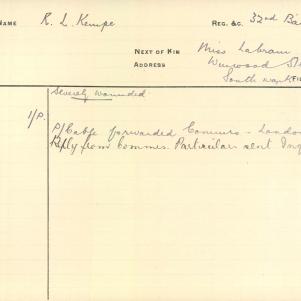 NAME R. L. Kempe REG. &C. 32nd Ba
NEXT OF KIN Miss Labram
ADDRESS Winwood St
South
Severely wounded.
1/P. P/Cable forwarded Commrs - London
Reply from Commrs. Particulars sent Inq